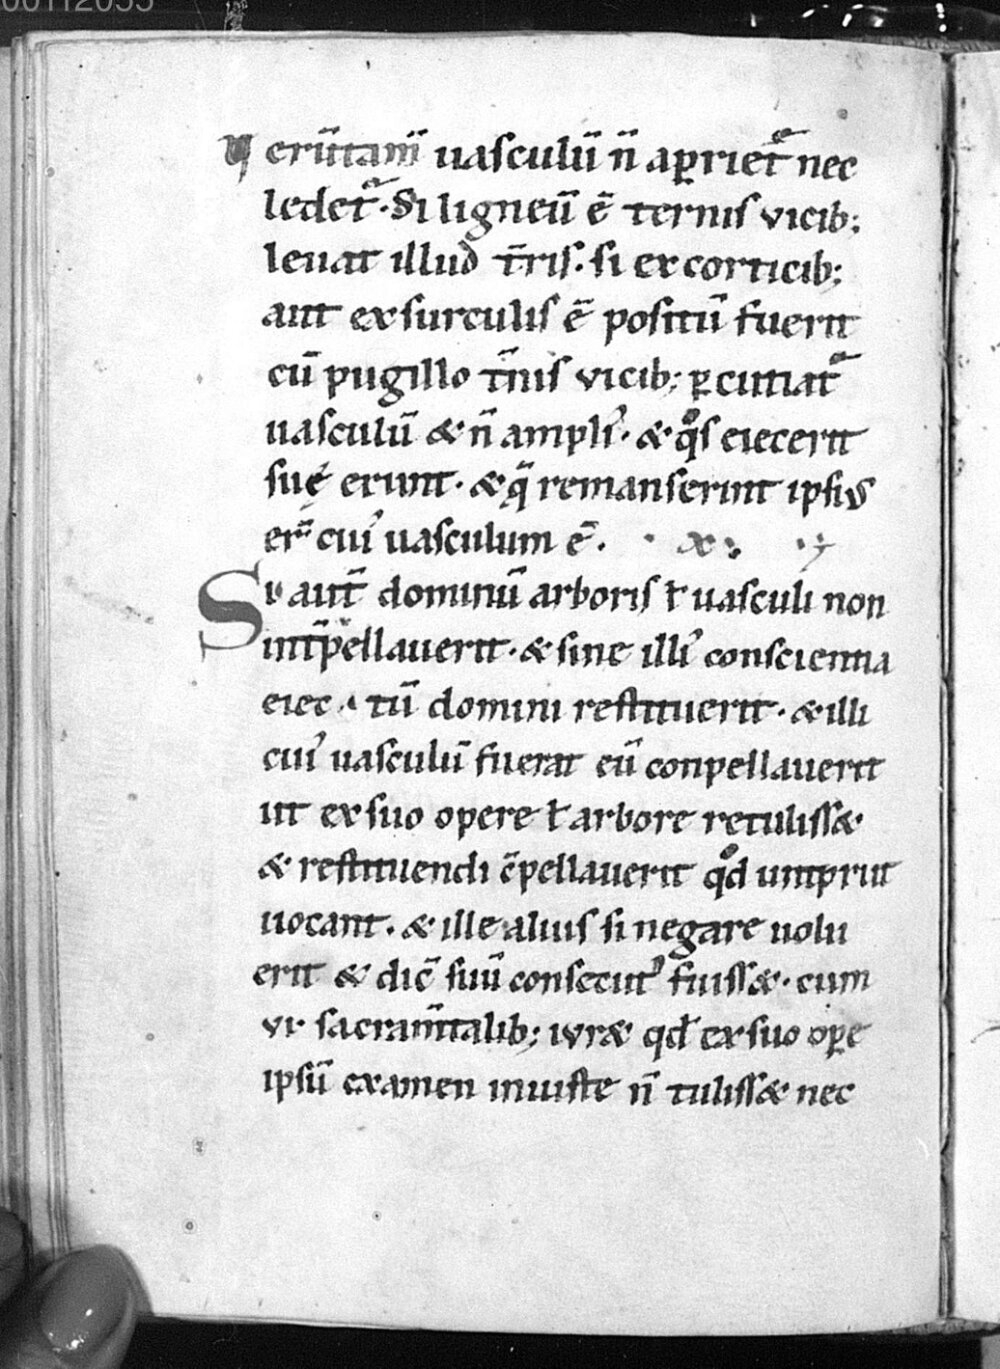 00112055
Uerūtam̄ uasculū n̄ aꝑriet᷑ nec
ledet᷑. Si ligneū ē ternis vicib;
leuat illud t̄ris. si ex corticib;
aut ex surculis ē positū fuerit
cū pugillo t̄nis vicib; ꝑcutiat᷑
uasculū & n̄ ampli᾽. & qͦs eiecerit
suę erunt. & q̄ remanserint ipsius
er̄ cui᾽ uasculum ē.
Si aut̄ dominū arboris ł uasculi non
int̄pellauerit. & sine illi᾽ conscientia
eiec. tū domini restituerit. & illi
cui᾽ uasculū fuerat eū conpellauerit
ut ex suo opere ł arbore retuliss&
& restituendi c̄pellauerit qͦd untprut
uocant. & ille alius si negare uolu
erit & dic̄ suū consecut᾽ fuiss&. cum
vi. sacram̄talib; iur& qđ ex suo oꝑe
ipsū examen inuiste n̄ tuliss& nec